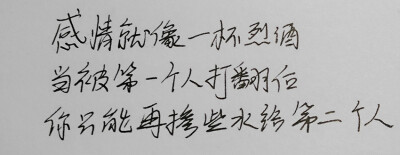 感情就像一杯烈酒
当被第一个人打翻后
你只能再掺些水给第二个人